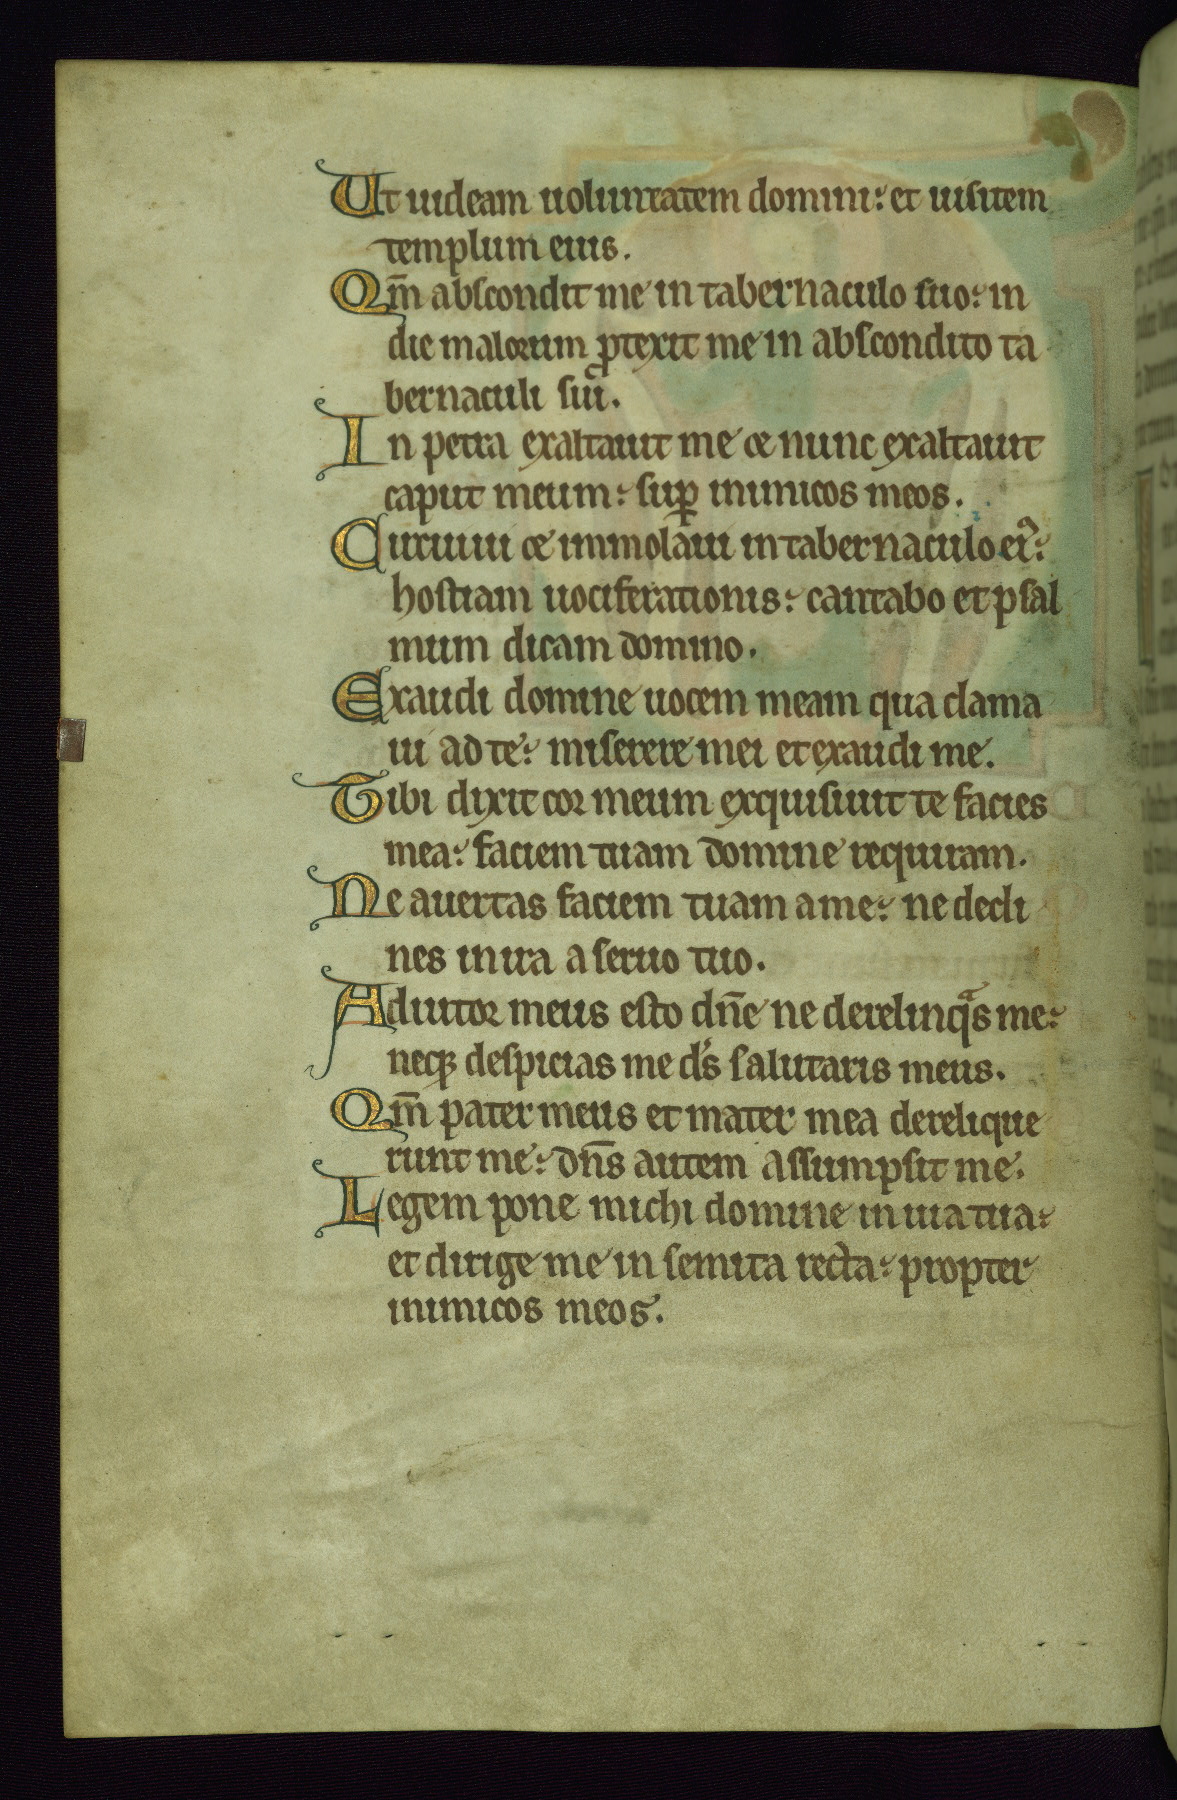 Ut uideam uoluntatem domini: et uisitem
templum eius.
Qm̄ abscondit me in tabernaculo suo: in
die malorum ꝓtexit me in abscondito ta
bernaculi sui.
In petra exaltauit me ⁊ nunc exaltauit
caput meum: suꝑ inimicos meos.
Circuiui ⁊ immolaui in tabernaculo eiꝰ:
hostiam uociferationis: cantabo et psal
mum dicam domino.
Exaudi domine uocem meam qua clama
ui ad te: miserere mei et exaudi me.
Tibi dixit cor meum exquisiuit te facies
mea: faciem tuam domine requiram.
Ne auertas faciem tuam a me: ne decli
nes in ira a seruo tuo.
Adiutor meus esto dn̄e ne derelinqͣs me:
neqꝫ despicias me ds̄ salutaris meus.
Qm̄ pater meus et mater mea derelique
runt me: dn̄s autem assumpsit me.
Legem pone michi domine in uia tua:
et dirige me in semita recta: propter
inimicos meos.